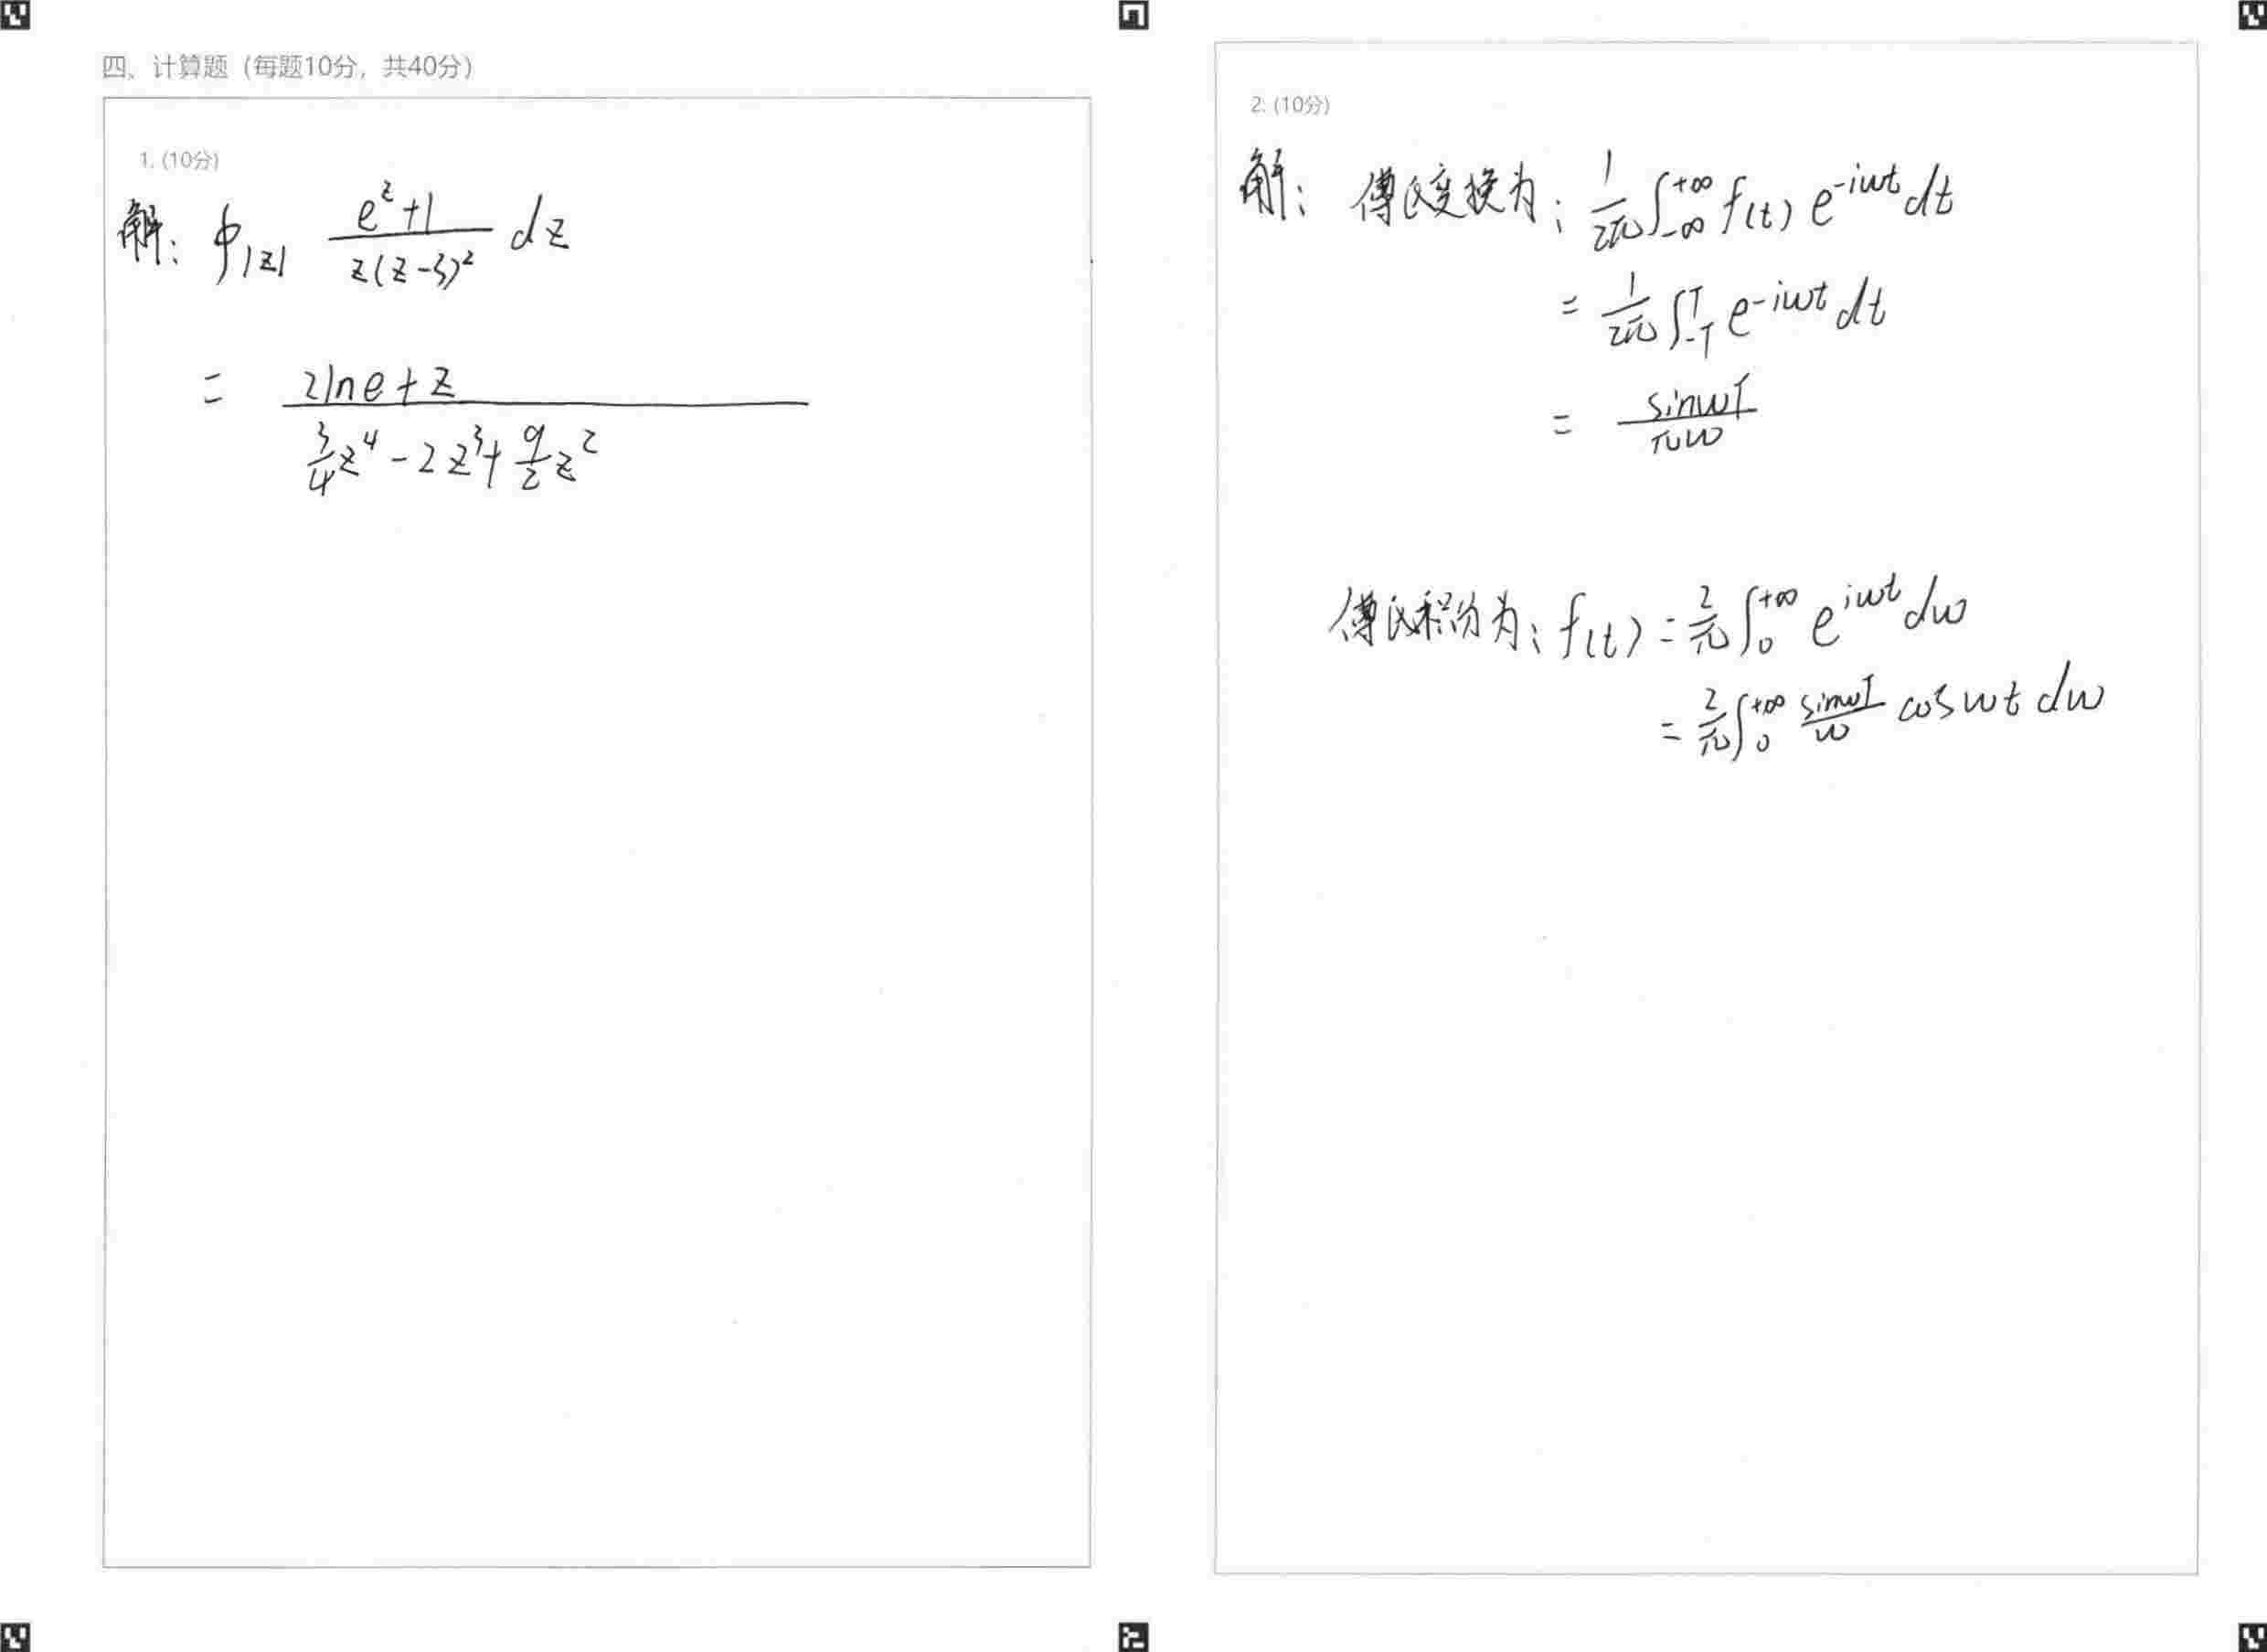 四、计算题（每题10分，共40分）
1. (10分)
解: ∮|z| (e^z+1)/(z(z-3)^2) dz
= (2lne+z)/(3/4 z^4 - 2z^3 + 9/2 z^2)
2. (10分)
解: 傅氏变换为: 1/2π ∫_{-∞}^{+∞} f(t) e^{-iωt} dt
= 1/2π ∫_{-T}^{T} e^{-iωt} dt
= sinωT/πω
傅氏积分为: f(t) = 2/π ∫_0^{+∞} e^{iωt} dω
= 2/π ∫_0^{+∞} sinωT/ω cosωt dω